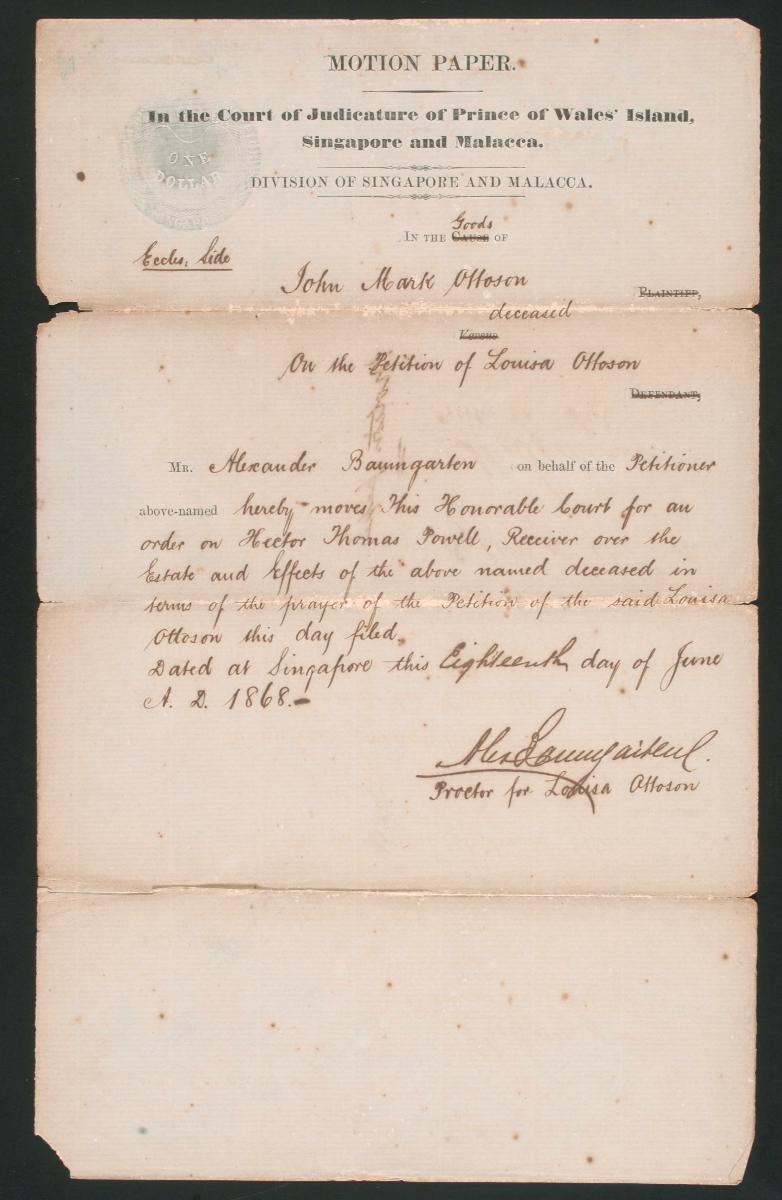 MOTION PAPER.
In the Court of Judicature of Prince of Wales' Island,
Singapore and Malacca.
ONE
DOLLAR
DIVISION OF SINGAPORE AND MALACCA.
Goods
IN THE CAUSE OF
Eccles. Side
John Mark Ottoson
PLAINTIFF,
deceased
Versus
On the Petition of Louisa Ottoson
DEFENDANT;
MR. Alexander Baumgarten on behalf of the Petitioner
above-named hereby moves This Honorable Court for an
order on Hector Thomas Powell, Receiver over the
Estate and Effects of the above named deceased in
terms of the prayer of the Petition of the said Louisa
Ottoson this day filed.
Dated at Singapore this Eighteenth day of June
A. D. 1868.-
Alex Baumgarten
Proctor for Louisa Ottoson